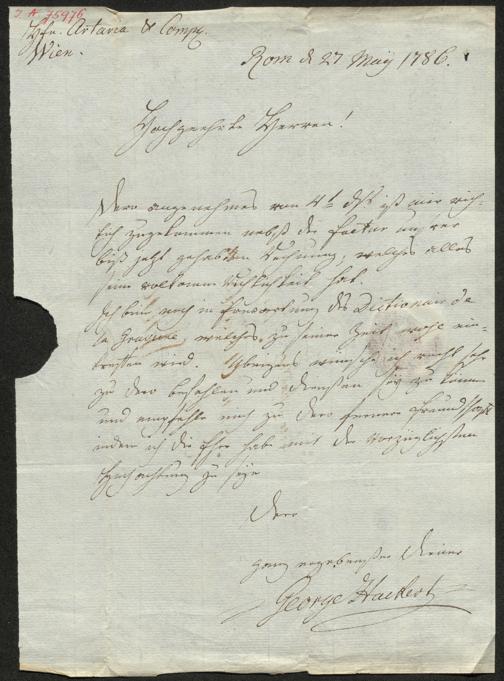 I. N. 75976
Hhn. Artaria & Compg.
Wien.
Rom d 27 May 1786.
Hochgeehrte Herren!
Dero angenehmes vom 4t. dss. ist mir rich-
tich zugekommen nebst der factur unsrer
biss jetzt gehabten Rechnung, welches alles
seine volkomne Richtichkeit hat.
Ich bin noch in Erwartung des Dictionair de
la Gravure, welches zu seiner Zeit wohl ein-
treffen wird. Ybrigens wünsche ich recht sehr
zu dero befehlen und diensten sey zu können
und empfehle mich zu dero ferneren freundschaft
indem ich die Ehre habe mit der vorzüglichsten
Hochachtung zu seyn
Dero
ganz ergebenster diener
George Hackert